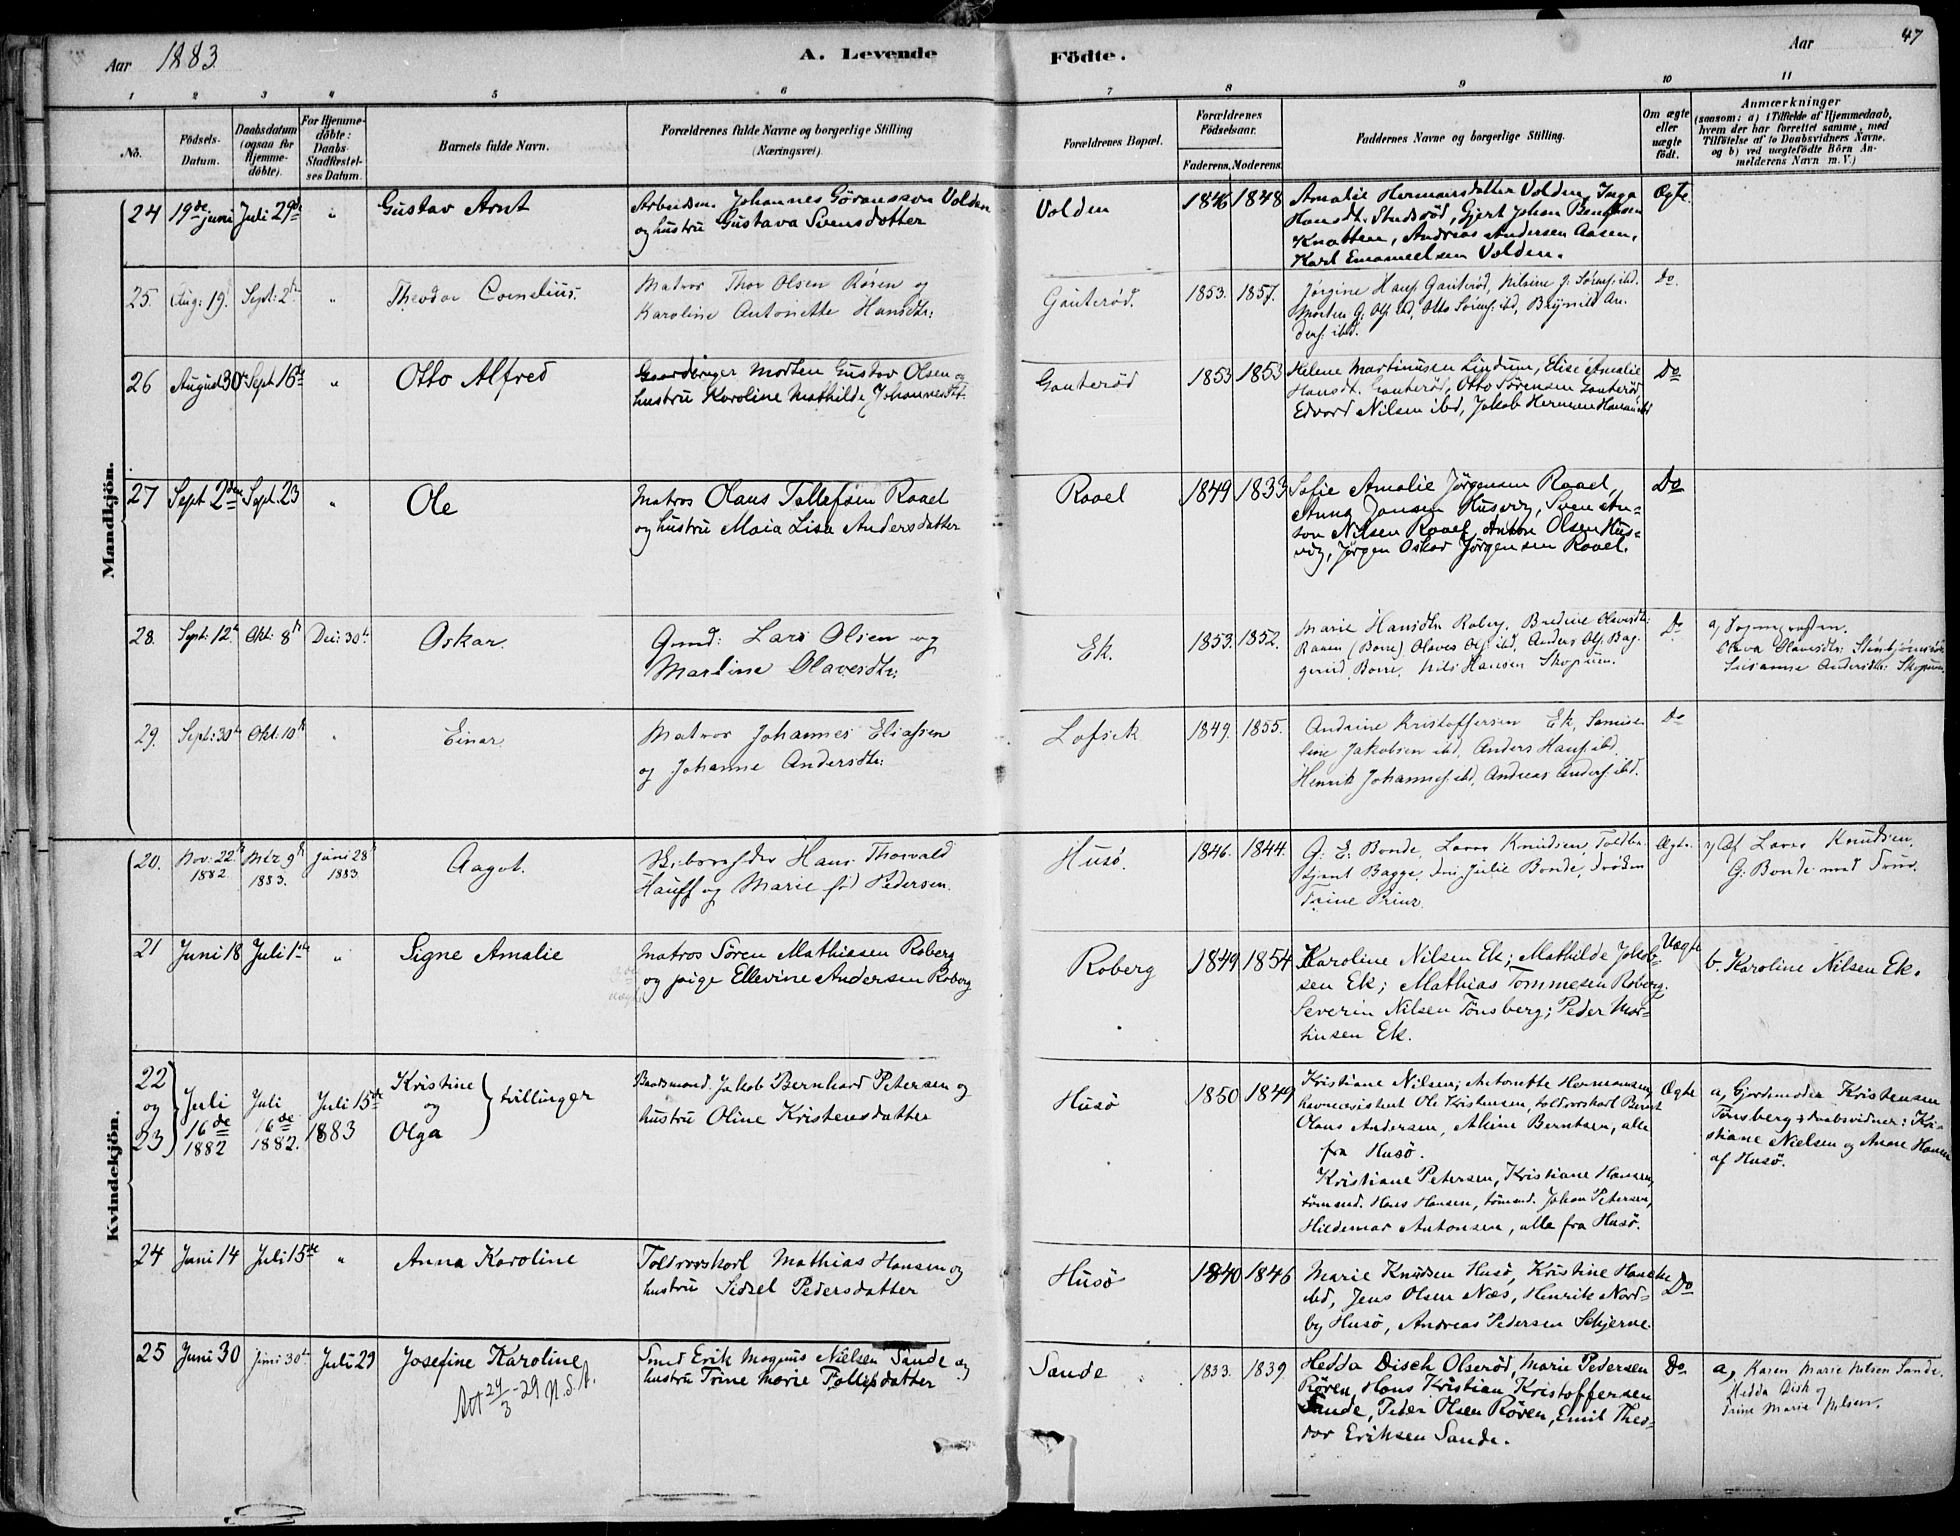 Aar 1883. A. Levende Födte. Aar 47
1 2 3 4 5 6 7 8 9 10 11
No. Födsels-Datum. Daabsdatum (ogsaa for Hjemme-döbte). For Hjemme-döbte: Daabs-Stadfæstel-ses Datum. Barnets fulde Navn. Forældrenes fulde Navne og borgerlige Stilling (Næringsvei). Forældrenes Bopæl. Forældrenes Födselsaar. Faderens. Moderens. Faddernes Navne og borgerlige Stilling. Om ægte eller uægte födt. Anmærkninger (saasom: a) i Tilfælde af Hjemmedaab, hvem der har forrettet samme, med Tilföielse af to Daabsvidners Navne, og b) ved uægtefödte Börn An-melderens Navn m. V.)
Mandkjön.
24 19de juni Juli 29de " Gustav Arnt
Arbeidsm. Johannes Göransson Volden
og hustru Gustava Svensdatter
Volden 1846 1848
Amalie Hermansdatter Volden, Inga
Hansdt. Studsröd, Gjert Johan Bentsen
Knatten, Andreas Andersen Aasen,
Karl Emanuelsen Volden.
Ægte
25. Aug: 19. Sept: 2 " Theodor Cornelius.
Matros Thor Olsen Rören og
Karoline Antonette Hansdtr:
Gauteröd. 1853. 1857.
Jörgine Hans. Gauteröd, Nilsine J. Sörens. ibd.
Morten G. Ols. ibd, Otto Sörens. ibd, Brynild An-
ders. ibd.
Do
26 August 30 Sept 16de " Otto Alfred
Gaardbruger Morten Gustav Olsen og
hustru Karoline Mathilde Johannesdt.
Gauteröd 1853 1853
Helene Martinusen Lindum, Elise Amalie
Hansdt. Gauteröd, Otto Sörensen Gauteröd
Edvard Nilsen ibd, Jakob Herman Hansen ibd
Do
27 Sept 2den Sept. 23 " Ole
Matros Olaus Tollefsen Raael
og hustru Maia Lisa Andersdatter
Raael 1849 1833
Sofie Amalie Jörgensen Raael,
Anna Jansen Husvig, Sven An-
ton Nilsen Raael, Anton Olsen Hus-
vig, Jörgen Oskar Jörgensen Raael.
Do
28. Sept: 12 Okt: 8 Dec: 30 Oskar.
Gmd: Lars Olsen og
Martine Olavesdtr:
Ek. 1853. 1852.
Marie Hansdtr Roberg. Bredine Olavesdtr:
(Borre) Olaves Ols. ibd. Anders Ols. Bag-
gerud, Borre. Nils Hansen Skopum.
Do
a,
Olava Olavesdtr:
Susanne Andersdtr: Skopum.
29. Sept: 30 Okt: 10 " Einar.
Matros Johannes Eliassen
og Johanne Andersdtr:
Lofsek 1849. 1855.
Andrine Kristoffersen Ek,
line Jakobsen ibd, Anders Hans. ibd.
Henrik Johannes. ibd, Andreas Anders. ibd.
Do
Kvindekjön.
20. Nov: 22 1882 Mrz 9 1883. Juni 28 1883 Aagot.
Skibsreder Hans Thorvald
Hauff og Marie föd Pedersen.
Husö. 1846. 1844.
G. E. Bonde, Lars Knudsen, Toldbe-
tjent Bagge, Fru Julie Bonde, Fröken
Trine Prinz.
Ægte.
Af Lars Knudsen.
G. Bonde med Frue.
21 Juni 18 Juli 1 " Signe Amalie
Matros Sören Mathiasen Roberg
og pige Ellevine Andersen Roberg
Roberg 1849 1854
Karoline Nilsen Ek; Mathilde Jakob-
sen Ek; Mathias Tommesen Roberg.
Severin Nilsen Tönsberg; Peder Mar-
tinsen Ek.
Uægte
b. Karoline Nilsen Ek.
22 og 23 Juli 16de 1882 Juli 16de 1882. Juli 15de 1883 Kristine og Olga } tvillinger
Baadsmand. Jakob Bernhard Petersen og
hustru Oline Kristensdatter
Husö 1850 1849
Kristiane Nilsen; Antonette Hermansen,
havneassistent Ole Kristensen, toldrorskarl Bernt
Olaus Andersen, Aline Berntsen, alle
fra Husö.
Kristiane Petersen, Kristiane Hansen,
tömmd. Hans Hansen, tömmd. Johan Petersen,
Hildemar Antonsen, alle fra Husö.
Ægte
a, Gjordemoder Kristensen
Tönsberg; daabsvidner: Kri-
stiane Nielsen og Anne Hansen
af Husö.
24 Juni 14 Juli 15de " Anna Karoline
Toldrorskarl Mathias Hansen og
hustru Sidsel Pedersdatter
Husö 1840 1846
Marie Knudsen Husö, Kristine
ibd, Jens Olsen Næs, Henrik Nord-
by Husö, Andreas Pedersen Skjerne
Do
25 Juni 30 Juni 30 Juli 29 Josefine Karoline
Att 24/3-29 N.S.A.
Smed Erik Magnus Nielsen Sande og
hustru Trine Marie Tollefsdatter
Sande 1833. 1839
Hedda Disch Olseröd, Marie Pedersen
Rören, Hans Kristian Kristoffersen
Sande, Peder Olsen Rören, Emil Theo-
dor Eriksen Sande.
Do
a, Karen Marie Nilsen Sande.
Hedda Disk og
Trine Marie Nilsen.